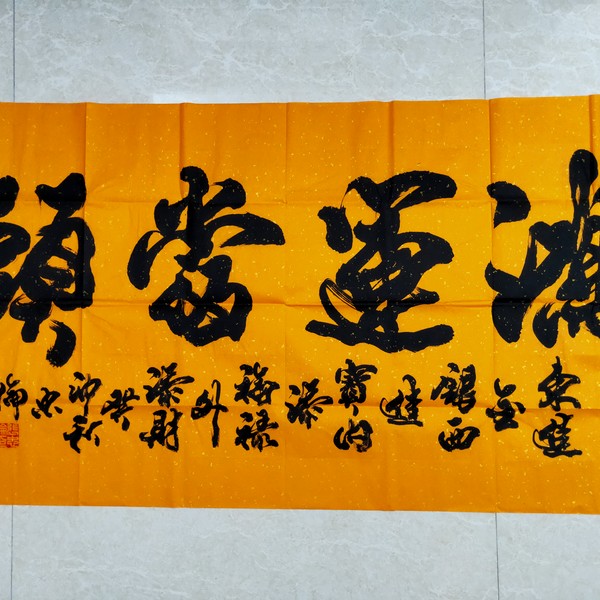 鴻運當頭
東進金銀西進寶内添福祿外添財癸卯秋忠